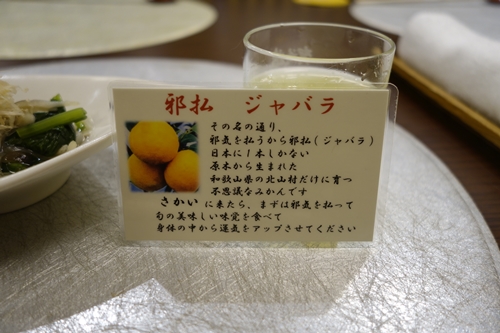 邪払 ジャバラ
その名の通り、
邪気を払うから邪払(ジャバラ)
日本に1本しかない
原木から生まれた
和歌山県の北山村だけに育つ
不思議なみかんです
さかい に来たら、まずは邪気を払って
旬の美味しい味覚を食べて
身体の中から運気をアップさせてください